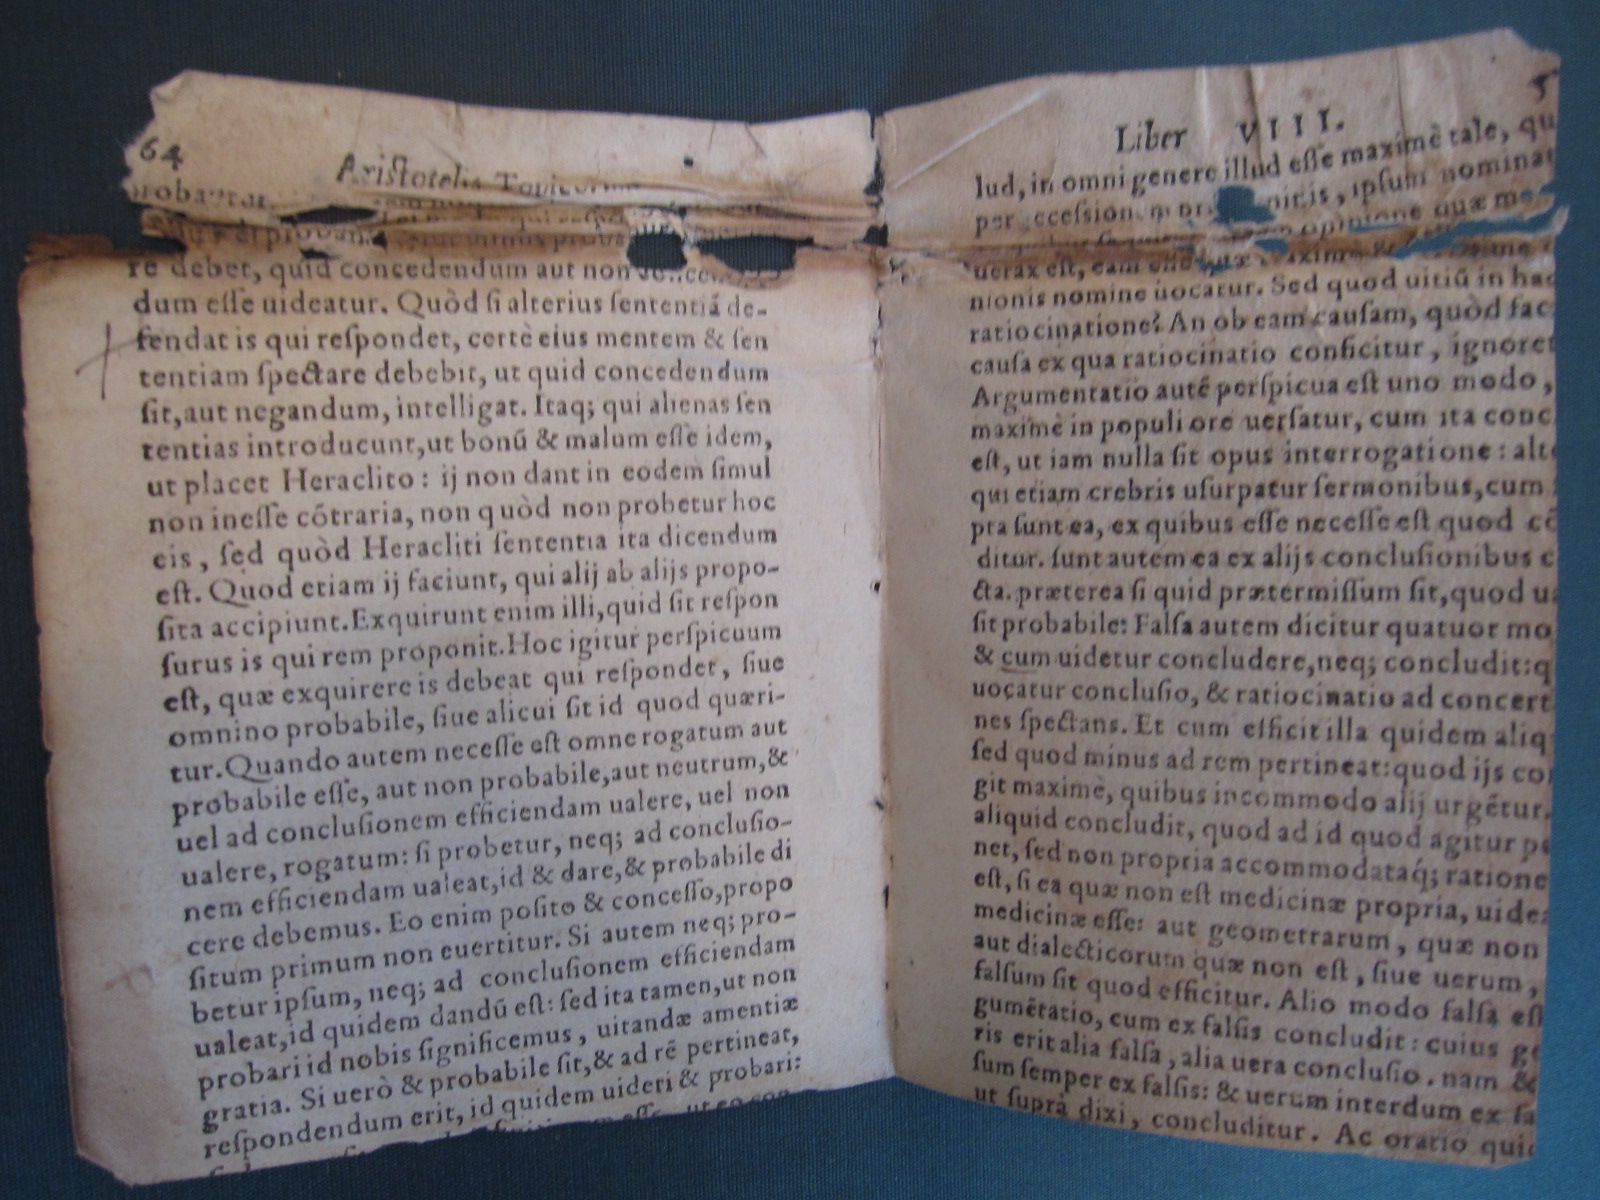 64
Aristotelis Topicorum
probantur,
re debet, quid concedendum aut non
dum esse uideatur. Quòd si alterius sententiā de-
fendat is qui respondet, certè eius mentem & sen
tentiam spectare debebit, ut quid concedendum
sit, aut negandum, intelligat. Itaq; qui alienas sen
tentias introducunt, ut bonū & malum esse idem,
ut placet Heraclito: ij non dant in eodem simul
non inesse cōtraria, non quòd non probetur hoc
eis, sed quòd Heracliti sententia ita dicendum
est. Quod etiam ij faciunt, qui alij ab alijs propo-
sita accipiunt. Exquirunt enim illi, quid sit respon
surus is qui rem proponit. Hoc igitur perspicuum
est, quæ exquirere is debeat qui respondet, siue
omnino probabile, siue alicui sit id quod quæri-
tur. Quando autem necesse est omne rogatum aut
probabile esse, aut non probabile, aut neutrum, &
uel ad conclusionem efficiendam ualere, uel non
ualere, rogatum: si probetur, neq; ad conclusio-
nem efficiendam ualeat, id & dare, & probabile di
cere debemus. Eo enim posito & concesso, propo
situm primum non euertitur. Si autem neq; pro-
betur ipsum, neq; ad conclusionem efficiendam
ualeat, id quidem dandū est: sed ita tamen, ut non
probari id nobis significemus, uitandæ amentiæ
gratia. Si uerò & probabile sit, & ad rē pertineat,
respondendum erit, id quidem uideri & probari:
Liber VIII.
5
lud, in omni genere illud esse maximè tale, qu
per ipsum nominat
opinione quæ me
uerax est, eam
nionis nomine uocatur. Sed quod uitiū in hac
ratiocinatione? An ob eam causam, quòd fac
causa ex qua ratiocinatio conficitur, ignoret
Argumentatio autē perspicua est uno modo,
maximè in populi ore uersatur, cum ita conc
est, ut iam nulla sit opus interrogatione: alte
qui etiam crebris usurpatur sermonibus, cum
pta sunt ea, ex quibus esse necesse est quod cō
ditur. sunt autem ea ex alijs conclusionibus c
cta. præterea si quid prætermissum sit, quod ua
sit probabile: Falsa autem dicitur quatuor mo
& cum uidetur concludere, neq; concludit: q
uocatur conclusio, & ratiocinatio ad concert
nes spectans. Et cum efficit illa quidem aliq
sed quod minus ad rem pertineat: quod ijs con
git maximè, quibus incommodo alij urgētur.
aliquid concludit, quod ad id quod agitur pe
net, sed non propria accommodataq́; ratione
est, si ea quæ non est medicinæ propria, uidea
medicinæ esse: aut geometrarum, quæ non
aut dialecticorum quæ non est, siue uerum,
falsum sit quod efficitur. Alio modo falsa est
gumētatio, cum ex falsis concludit: cuius ge
ris erit alia falsa, alia uera conclusio. nam &
sum semper ex falsis: & uerum interdum ex fa
ut suprà dixi, concluditur. Ac oratio quid